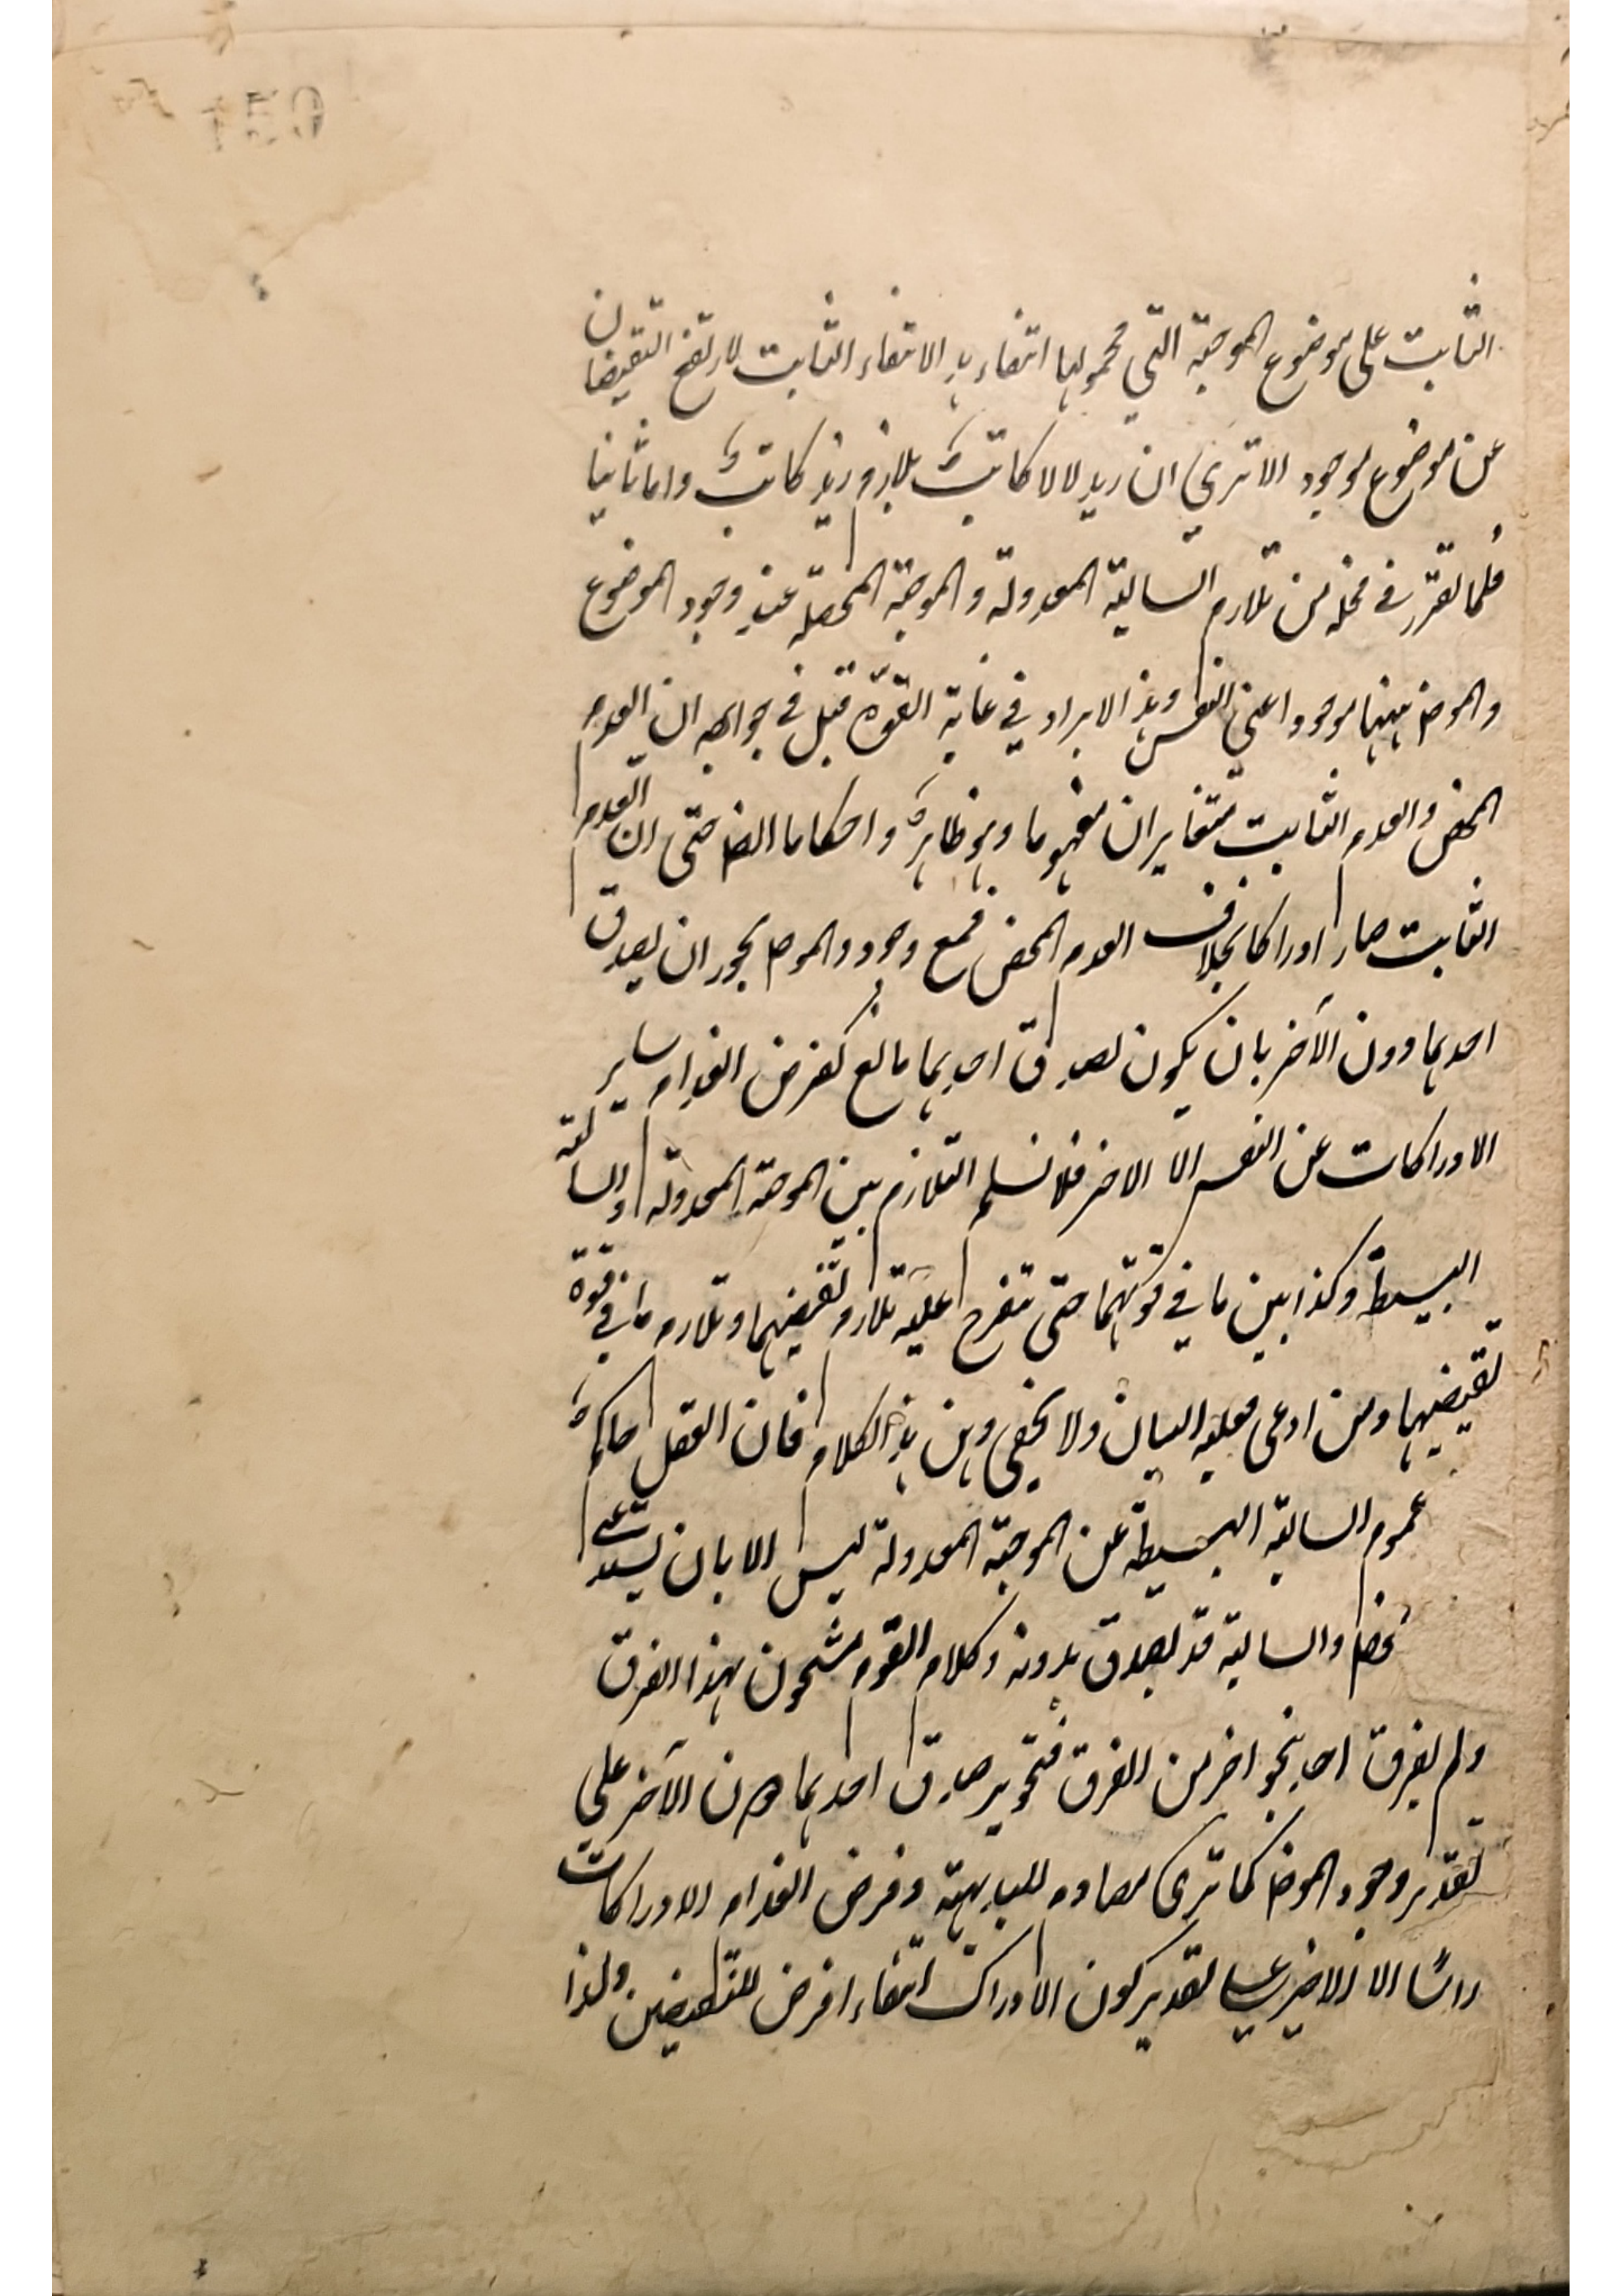 الثابت على موضوع الموجبة التي محمولها انتفاء هذا الانتفاء الثابت لارتفع النقيضان
عن موضوع موجود الا ترى ان زيد لا لا كاتب يلازم زيد كاتب واما ثانيا
فلما تقرر في محله من تلازم السالبة المعدولة والموجبة المحصلة عند وجود الموضوع
والموضـ ههنا موجود اعنى النفس وهذا الايراد في غاية القوة قيل في جوابه ان العدم
المحض والعدم الثابت متغايران مفهوما وهو ظاهر واحكاما ايضـ حتى ان العدم
الثابت صار ادراكا بخلاف العدم المحض فمع وجود الموضـ يجوز ان يصدق
احدهما دون الآخر بان يكون لصدق احدهما مانع كفرض انعدام ساير
الادراكات عن النفس الا الاخر فلا نسلم التلازم بين الموجبة المعدولة والسالبة
البسيطة وكذا بين ما في قوتهما حتى يتفرع عليه تلازم نقيضيهما وتلازم ما في قوة
نقيضيهما ومن ادعى فعليه البيان ولا يخفى وهن هذا الكلام فان العقل حاكم
عموم السالبة البسيطة عن الموجبة المعدولة ليس الا بان يستدعى
والسالبة قد يصدق بدونه وكلام القوم مشحون بهذا الفرق
ولم يفرق احد بنحو اخر من الفرق فتجويز صدق احدهما دون الآخر على
تقدير وجود الموضـ كما ترى مصادم للبداهة وفرض انعدام الادراكات
راسًا الا الاخير على تقدير كون الادراك انتفاء افرض للنقيضين ولذا